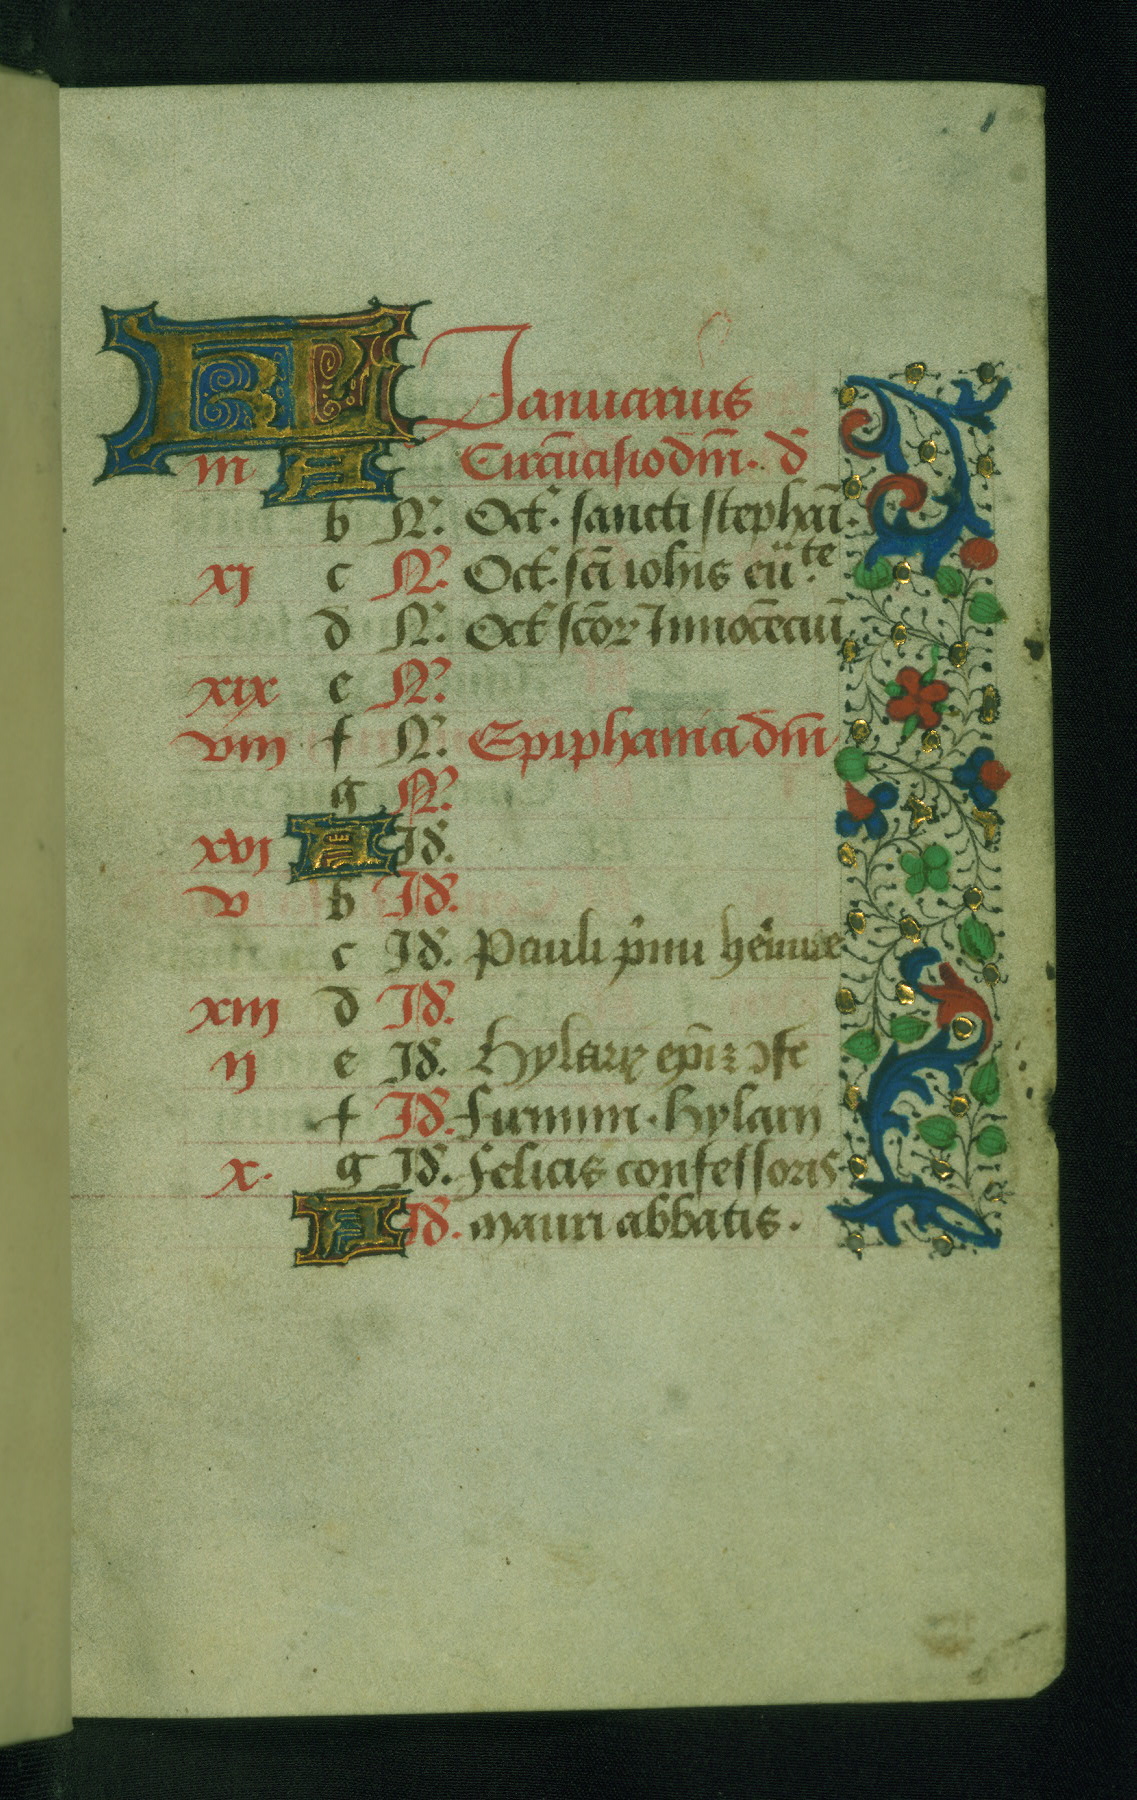 KL Januarius
iii A Circūcisio dñi. d
b N. Oct. sancti stephañ.
xi c N. Oct. scī iohīs eūte
d N. Oct scōꝝ Innocēciū
xix e N.
viii f N. Epiphania dñi
g N.
xvi A Id.
v b Id.
c Id. Pauli primi heͬmite
xiii d Id.
ii e Id.
f Id. firmini. hylarii
x. g Id. felicis confessoris
A Id. mauri abbatis.